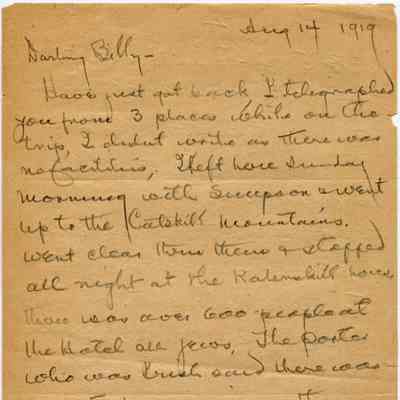 Aug 14 1919
Darling Billy -
Have just got back I telegraphed
you from 3 places while on the
trip, I didnt write as there was
no facilities, I left here Sunday
morning with Simpson & went
up to the Catskill Mountains.
went clear thru them & stopped
all night at the Katerskill house
there was over 600 people at
the Hotel all Jews, The Porter
who was Irish said there was